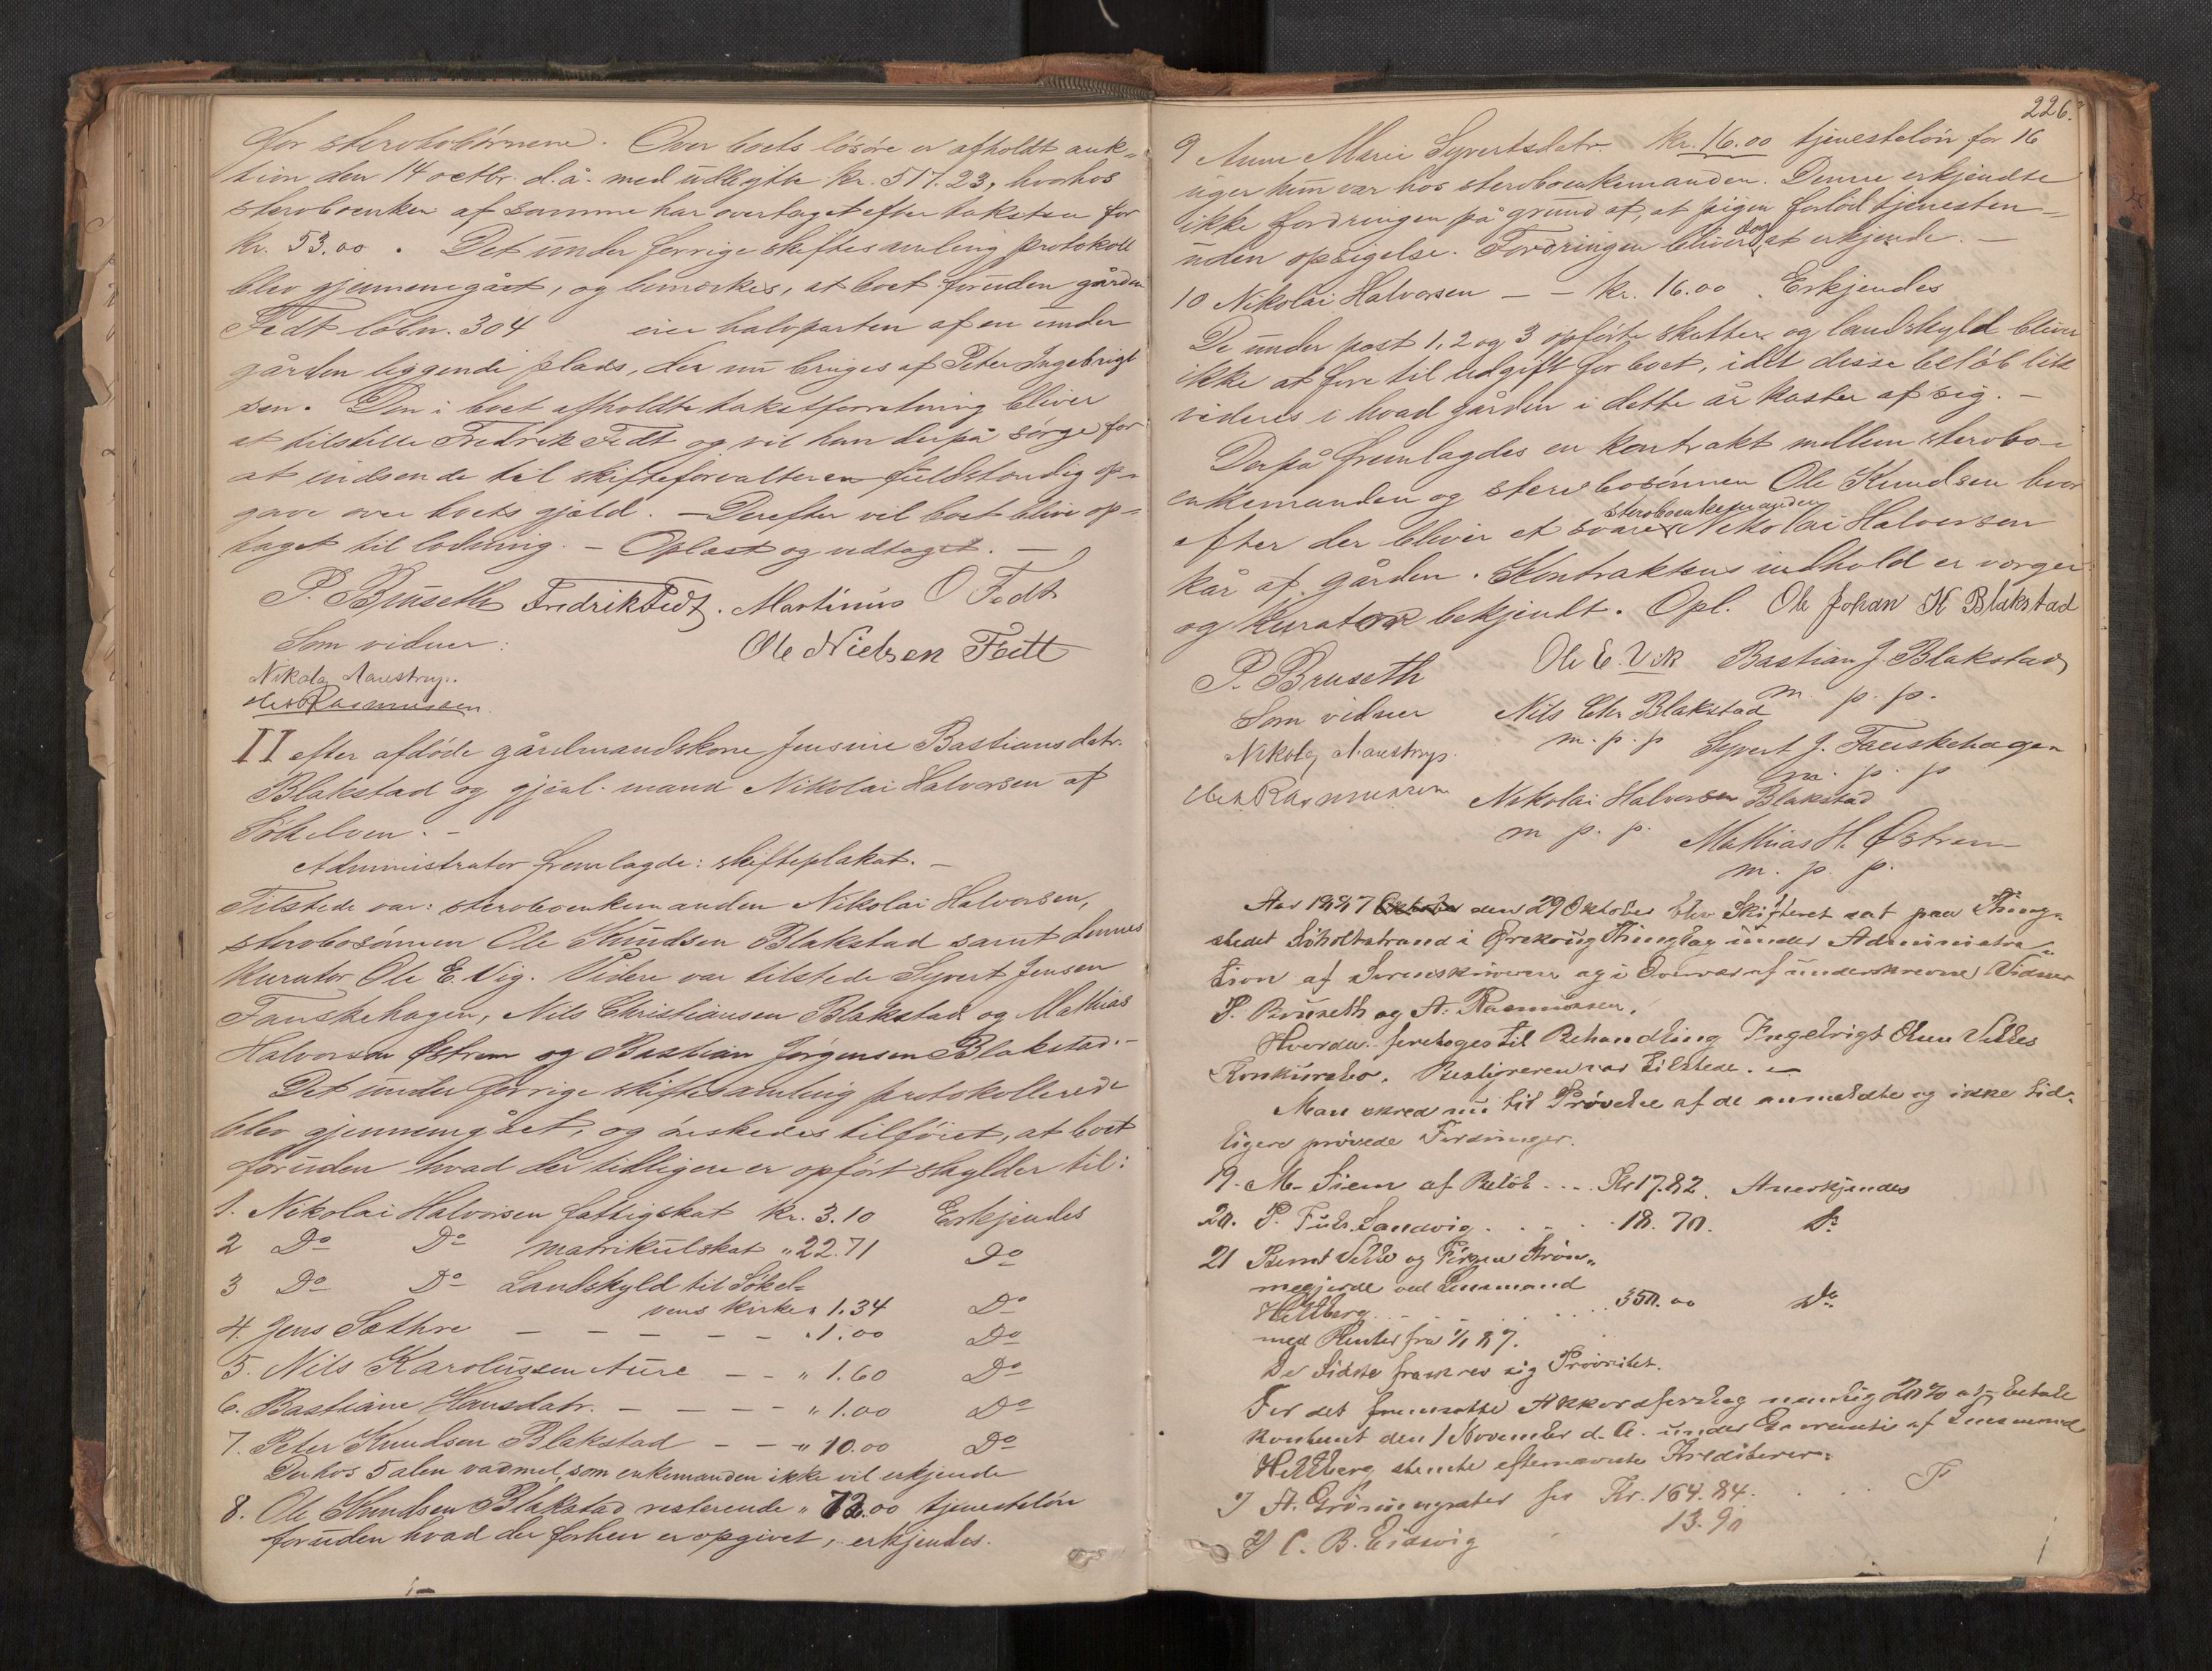 for sterbobörnene. Over boets lösöre er afholdt auk-
tion den 14 octbr. d. å. med udbytte kr. 517.23, hvorhos
sterboenken af samme har overtaget efter taksten for
kr. 53.00. Det under forrige skiftesamling protokoll
blev gjennemgået, og bemærkes, at boet foruden gården
Fedt löbn. 304 eier halvparten af en under
gården liggende plads, der nu bruges af Peter Ingebrigt
sen. Den i boet afholdte takstforretning bliver
at tilstille Fredrik Fedt og vil han derpå sörge for
at indsende til skifteforvalteren fuldstændig op-
gave over boets gjæld. — Derefter vil boet blive op-
taget til lodning. — Oplæst og vedtaget. —
P. Bruseth Fredrik Fedt. Martinus O Fedt
Som vidner: Ole Nielsen Fett
Nikolaj Aarestrup.
A Rasmussen.
II efter afdöde gårdmandskone Jensine Bastiansdatr.
Blakstad og gjenl. mand Nikolai Halvorsen af
Sökelven. —
Administrator fremlagde: skifteplakat. —
Tilstede var: sterboenkemanden Nikolai Halvorsen,
sterbosönnen Ole Knudsen Blakstad samt dennes
kurator Ole E. Vig. Videre var tilstede Syvert Jensen
Fauskehagen, Nils Christiansen Blakstad og Mathias
Halvorsen Østrem og Bastian Jørgensen Blakstad. —
Det under forrige skiftesamling protokollerede
blev gjennemgået, og önskedes tilföiet, at boet
foruden hvad der tidligere er opfört skylder til:
1. Nikolai Halvorsen fattigskat kr. 3.10 Erkjendes
2 Do Do matrikulskat " 22.71 Do
3 Do Do Landskyld til Sökel-
vens kirke " 1.34 Do
4. Jens Sæthre — — — — — " 1.00 Do
5. Nils Karolussen Aure — — " 1.60 Do
6. Bastiane Hansdatr. — — — — " 1.00 Do
7. Peter Knudsen Blakstad — — " 10.00 Do
Derhos 5 alen vadmel, som enkemanden ikke vil erkjende
8. Ole Knudsen Blakstad resterende " 72.00 tjenestelön
foruden hvad der forhen er opgivet, erkjendes.
226.
9 Anne Marie Syvertsdatr. kr. 16.00 tjenestelön for 16
uger hun var hos sterboenkemanden. Denne erkjendte
ikke fordringen på grund af, at pigen forlod tjenesten
uden opsigelse. Fordringen bliver dog at erkjende. —
10 Nikolai Halvorsen — — kr. 16.00. Erkjendes
De under post 1. 2 og 3 opförte skatter og landskyld bliver
ikke at före til udgift for boet, idet disse belöb lik
videres i hvad gården i dette år kaster af sig. —
Derpå fremlagdes en kontrakt mellem sterbo-
enkemanden og sterbosönnen Ole Knudsen hvor
efter der bliver at svare sterboenkemanden Nikolai Halvorsen
kår af gården. Kontraktens indhold er værger
og kurator bekjendt. Opl. Ole Johan K Blakstad
P. Bruseth Ole E. Vik Bastian J. Blakstad
m. p. p.
Som vidner Nils Chr Blakstad
m. p. p Syvert J. Fauskehagen
Nikolaj Aarestrup. m. p. p
A Rasmussen Nikolai Halvorsen Blakstad
m. p. p. Mathias H. Østrem
m. p. p.
Aar 1887 den 29 Oktober blev Skifteret sat paa Thing-
stedet Søholtstrand i Ørskoug Thinglag under Administra-
tion af Sorenskriveren og i Overvær af underskrevne Vidner
P. Bruseth og A. Rasmussen.
Hvorda foretoges til Behandling Ingebrigt Olsen Velles
Konkursbo. Bestyreren var tilstede. —
Man skred nu til Prøvelse af de anmeldte og ikke tid-
ligere prøvede Fordringer.
19. M. Siem af Beløb . . . Kr 17.82. Anerkjendes
20. P. Sandvig . . . . 18.70. Do
21 Bernt Velle og Jørgen Strøm-
megjerde ved Lensmand
Heltberg . . . . . 350.00 Do
med Renter fra 1/1 87.
De Sidste fraskrev sig Prioritet.
For det fremsatte Akkordforslag nemlig 20% at betale
kontant den 1 November d. A. under Garanti af Lensmand
Heltberg stemte efternævnte Kreditorer:
1) A. Grønningsæter for Kr. 164.84. . . .
2) C. B. Eidsvig 13.90